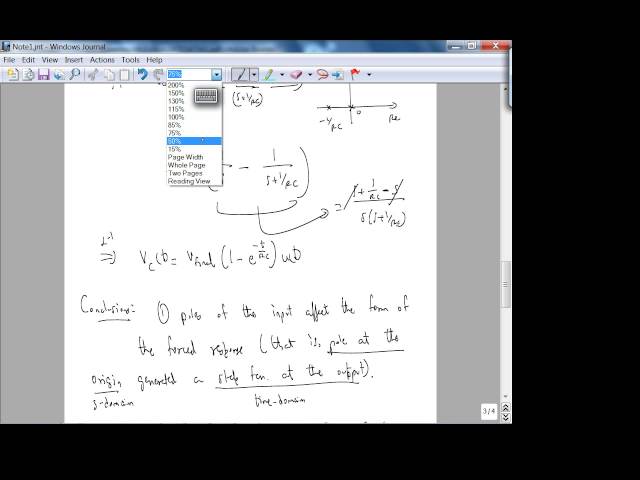 Note1.jnt - Windows Journal
File Edit View Insert Actions Tools Help
75%
200%
150%
130%
115%
100%
85%
75%
50%
15%
Page Width
Whole Page
Two Pages
Reading View
(s+1/RC)
-1/RC 0 Re
- 1/(s+1/RC))
= (s + 1/RC - s)/(s(s+1/RC))
L⁻¹
⇒ Vc(t) = Vfinal (1 - e^(-t/RC)) u(t)
Conclusions: ① poles of the input affect the form of
the forced response (that is, pole at the
origin generated a step fcn. at the output).
s-domain time-domain
3/4